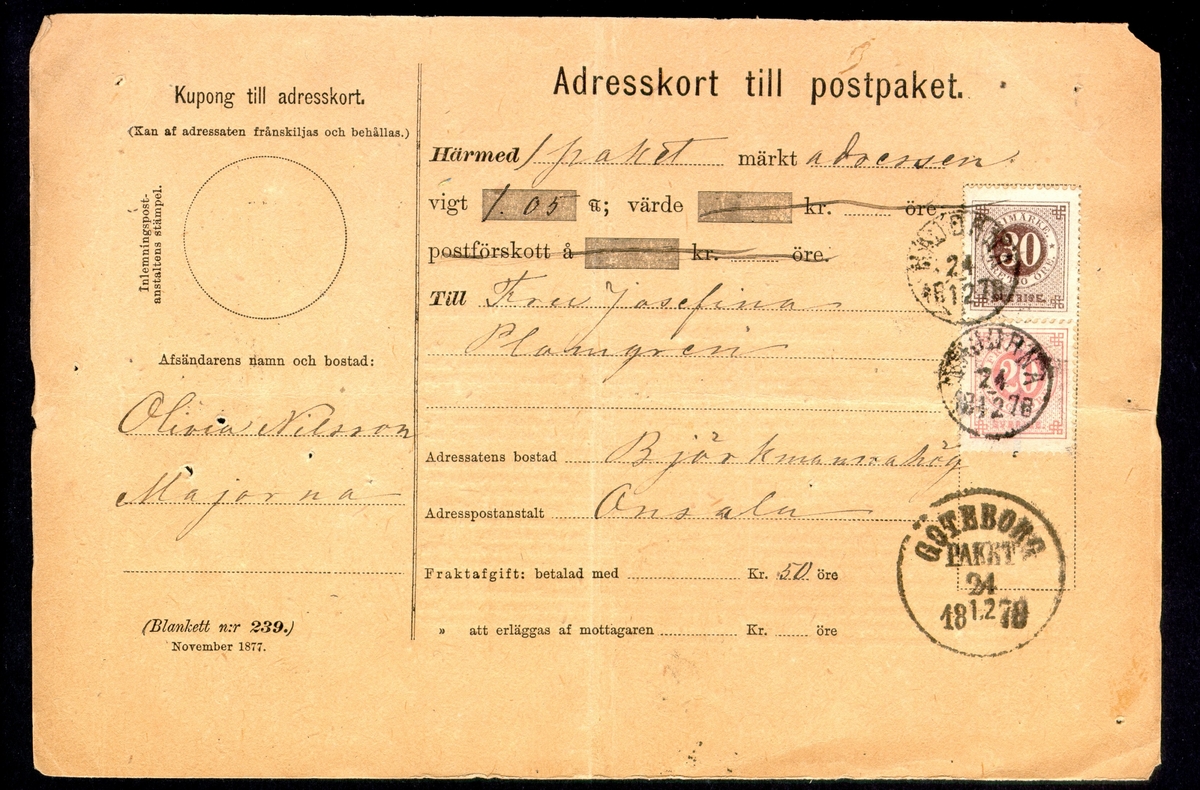 Kupong till adresskort.
(Kan af adressaten frånskiljas och behållas.)
Inlemningspost-
anstaltens stämpel.
Afsändarens namn och bostad:
Olivia Nilsson
Majorna
(Blankett n:r 239.)
November 1877.
Adresskort till postpaket.
Härmed 1 paket märkt adressen.
vigt 1.05 ℔; värde kr. öre
postförskott å kr. öre.
Till Fru Josefina
Plomgren
Adressatens bostad Björkmannahög
Adresspostanstalt Onsala
Fraktafgift: betalad med Kr. 50 öre
» att erläggas af mottagaren Kr. öre
FRIMÄRKE.
30
SVERIGE.
24
18 12 78
20
SVERIGE.
24
18 12 78
GÖTEBORG
PAKET
24
18 12 78